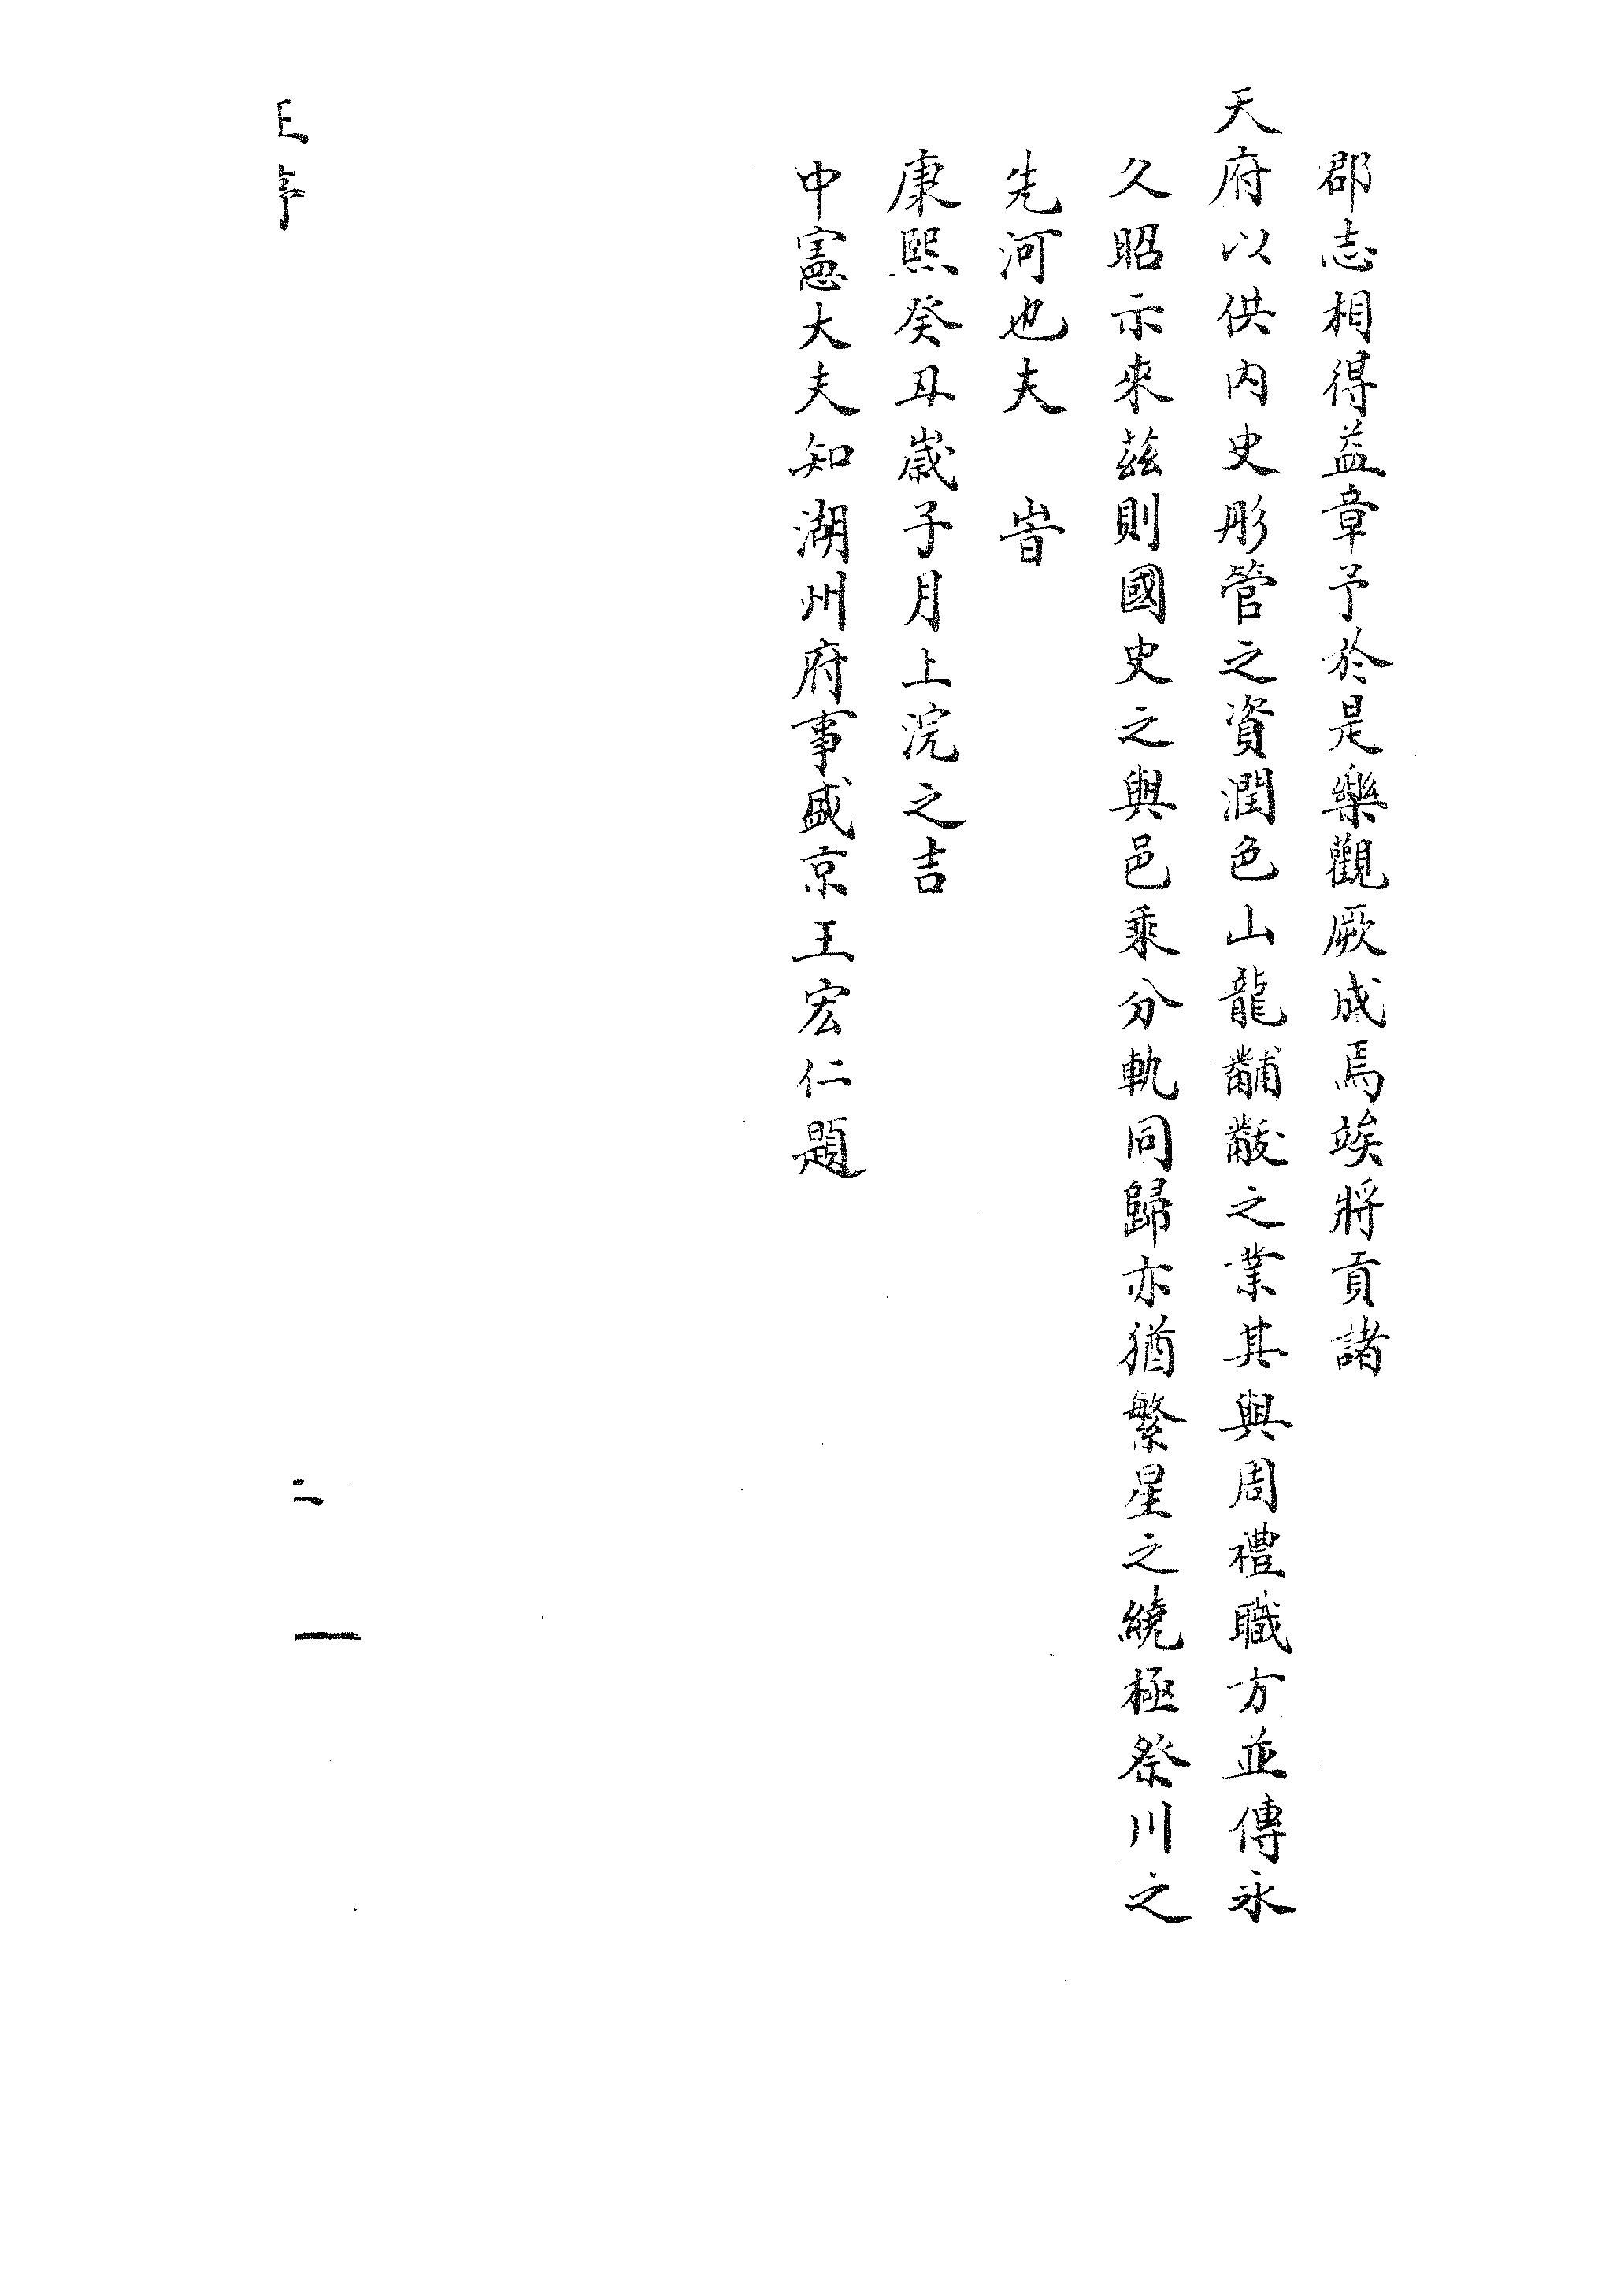 郡志相得益章予於是樂觀厥成焉竢將貢諸
天府以供内史彤管之資潤色山龍黼黻之業其與周禮職方並傳永
久昭示來茲則國史之與邑乘分軌同歸亦猶繁星之繞極祭川之
先河也夫 旹
康熙癸丑歲子月上浣之吉
中憲大夫知湖州府事盛京王宏仁題
王序
二